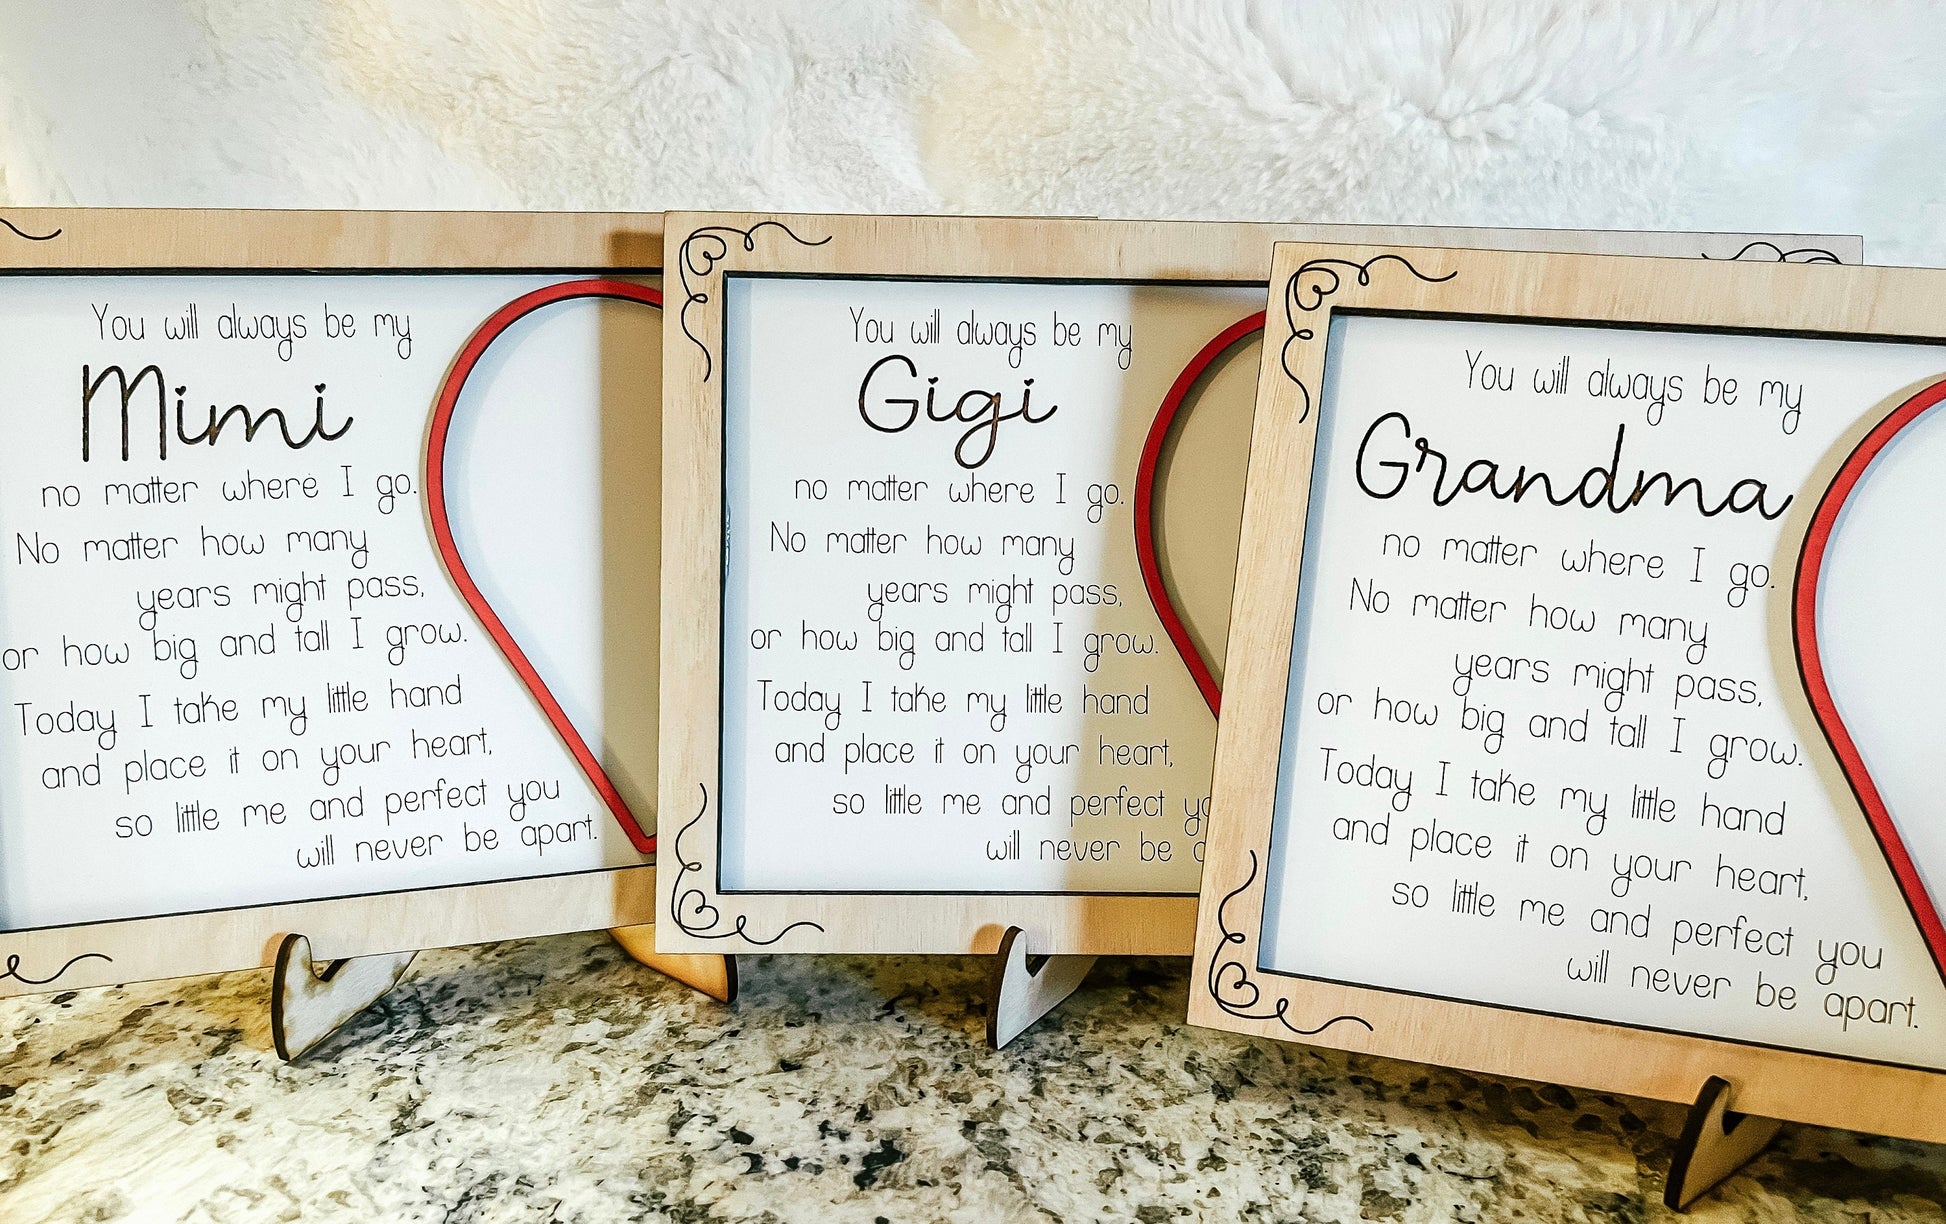 You will always be my
Mimi
no matter where I go.
No matter how many
years might pass,
or how big and tall I grow.
Today I take my little hand
and place it on your heart,
so little me and perfect you
will never be apart.
You will always be my
Gigi
no matter where I go.
No matter how many
years might pass,
or how big and tall I grow.
Today I take my little hand
and place it on your heart,
so little me and perfect
will never be
You will always be my
Grandma
no matter where I go.
No matter how many
years might pass,
or how big and tall I grow.
Today I take my little hand
and place it on your heart,
so little me and perfect you
will never be apart.